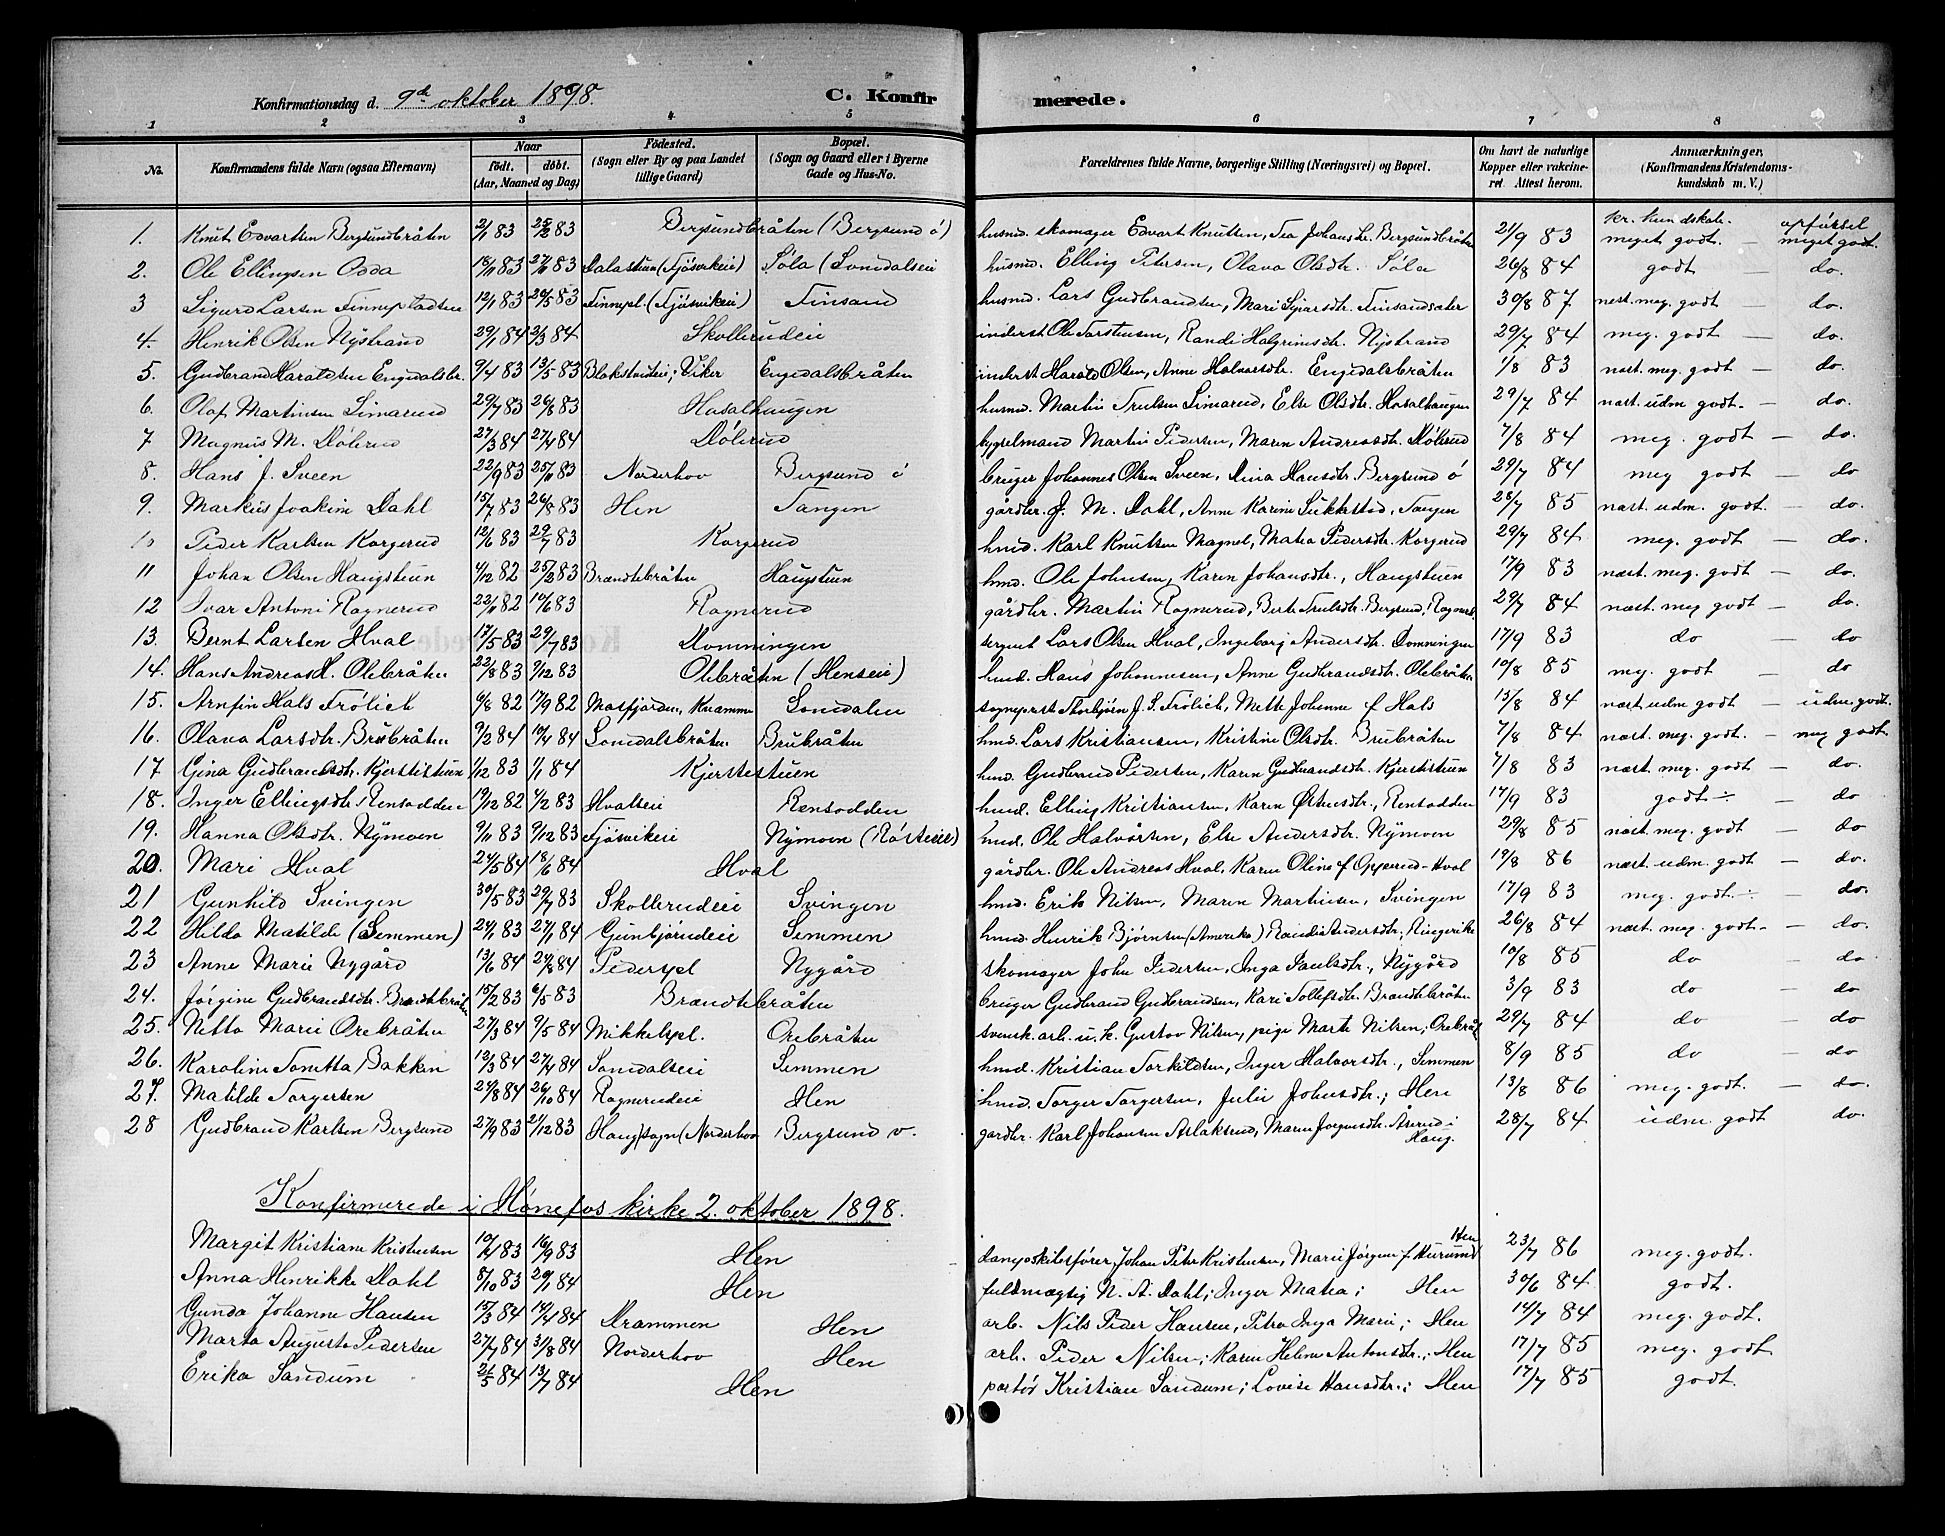 Konfirmationsdag d. 9de oktober 1898. C. Konfirmerede.
1 2 3 4 5 6 7 8
No. Konfirmandens fulde Navn (ogsaa Efternavn) Naar født. døbt. (Aar, Maaned og Dag) Fødested. (Sogn eller By og paa Landet tillige Gaard) Bopæl. (Sogn og Gaard eller i Byerne Gade og Hus-No. Forældrenes fulde Navne, borgerlige Stilling (Næringsvei) og Bopæl. Om havt de naturlige Kopper eller vakcineret Attest herom. Anmærkninger, (Konfirmandens Kristendomskundskab m. V.)
kr. kundskab. opførsel
1. Knut Edvartsen Bergsundbråten 2/1 83 25/2 83 Bergsundbråten (Bergsund ö) husmd. skomager Edvart Knutsen, Tea Johansdr. Bergsundbråten 21/9 83 meget godt. — meget godt.
2. Ole Ellingsen Odda 18/11 83 83 (Tjösvikeii) Söla (Somdalseie husmd. Elling Petersen, Olava Olsdtr. Söla 26/8 84 godt — do.
3 Sigurd Larsen Finnepladsen 12/1 83 83 Finnepl. (Tjösvikeii) Finsand husmd. Lars Gudbrandsen, Mari Finsandsæter 30/8 87 næst. meg. godt do.
4. Henrik Olsen Nystrand 29/1 84 2/3 84 Skollerudeii inderst Ole Torstensen, Randi Halgrimsdtr. Nystrand 29/7 84 meg. godt — do.
5. Gudbrand Haraldsen Engedalsbr. 9/4 83 13/5 83 Viker Engedalsbråten inderst Harald Olsen, Anne Halvorsdtr. Engedalsbråten 1/8 83 næst. meg. godt — do.
6. Olaf Martinsen Limarud 29/7 83 26/8 83 Hasalhaugen husmd. Martin Trulsen Limarud, Else Olsdtr. Hasalhaugen 29/7 84 næst. udm godt. — do.
7 Magnus M. Dölerud 27/3 84 27/4 84 Dölerud Martin Pedersen, Maren Andreasdtr. Dölerud 7/8 84 meg. godt — do.
8. Hans J. Sveen 22/9 83 83 Norderhov Bergsund ö bruger Johannes Olsen Sveen, Dina Hansdtr. Bergsund ö 29/7 84 meg godt — do
9. Markus Joakim Dahl 15/7 83 26/8 83 Hen Tangen gårdbr. J. M. Dahl, Anne Karine Sukkestad, Tangen 28/7 85 næst. udm. godt. — do.
10 Peder Karlsen Korgerud 12/6 83 29/7 83 Korgerud hmd. Karl Knutsen Magnel, Matea Pedersdtr. Korgerud 29/7 84 meg. godt — do.
11 Johan Olsen Haugstuen 4/12 82 25/2 83 Brændtebråten Haugstuen hmd. Ole Johnsen, Karen Johansdtr., Haugstuen 17/9 83 næst. meg. godt — do.
12 Ivar Antoni Ragnerud 22/11 82 10/6 83 Ragnerud gårdbr. Martin Ragnerud, Berte Trulsdtr. Bergsund, Ragnerud 29/7 84 næst. meg godt — do.
13. Bernt Larsen Hval 17/5 83 29/7 83 Domningen sergent Lars Olsen Hval, Ingeborg Andersdtr. Domningen 17/9 83 do — do
14. Hans Andreas H. Olebråten 22/8 83 9/12 83 Olebråten (Henseie) hmd. Hans Johannesen, Anne Gudbrandsdtr. Olebråten 10/8 85 meg. godt — do
15. Arnfin Hals Frölich 6/8 82 17/9 82 Masfjorden, Kvamme Somdalen sogneprest Thorbjörn J. S. Frölich, Mette Johanne f Hals 15/8 84 næst. udm godt — udm. godt.
16. Olava Larsdtr. Brubråten 9/2 84 14/4 84 Somdalsbråten Brubråten hmd. Lars Kristiansen, Kristine Olsdtr. Brubråten 7/8 84 næst. meg. godt — meg godt.
17 Gina Gudbrandsdtr. Kjerstistuen 1/12 83 1/1 84 Kjerstestuen hmd. Gudbrand Pedersen, Karen Gudbrandsdtr. Kjerstistuen 7/8 83 næst. meg. godt — do.
18. Inger Ellingsdtr. Rensodden 19/12 82 4/2 83 Hvalseie Rensodden hmd. Elling Kristiansen, Karen Østensdtr., Rensodden 17/9 83 godt ÷ — do
19. Hanna Olsdtr. Nymoen 9/11 83 9/12 83 Tjösvikeii Nymoen (Råsteeie) hmd. Ole Halvorsen, Else Andersdtr. Nymoen 29/8 85 næst. meg. godt — do
20. Mari Hval 24/5 84 18/6 84 Hval gårdbr. Ole Andreas Hval, Karen Oline f Opperud - Hval 19/8 86 næst. udm. godt — do.
21 Gunhild Svingen 30/5 83 29/7 83 Skollerudeii Svingen hmd. Erik Nilsen, Maren Martinsen, Svingen 17/9 83 meg. godt ÷ do.
22 Hilda Matilde (Semmen) 24/11 83 27/1 84 Gunbjörudeii Semmen hmd. Henrik Björnsen (Amerika) Randi Andersdtr., Ringerike 26/8 84 næst. meg. godt. — do.
23 Anne Marie Nygård 13/6 84 24/8 84 Pederspl Nygård skomager John Pedersen, Inga Paulsdtr., Nygård 10/8 85 do — do
24. Jörgine Gudbrandsdtr. Brændtebråten 15/2 83 6/5 83 Brændtebråten bruger Gudbrand Gudbrandsen, Kari Tollefsdtr. Brændtebråten 3/9 83 do — do
25. Netta Marie Orebråten 27/3 84 9/5 84 Mikkelspl. Orebråten svensk arb. u. k. Gustav Nilsen, pige Marte Nilsen; Orebråt 29/7 84 do — do
26. Karoline Tonetta Bakken 12/3 84 27/4 84 Somdalseii Semmen hmd. Kristian Torkildsen, Inger Halvorsdtr., Semmen 8/9 85 do — do
27. Matilde Torgersen 84 26/10 84 Ragnerudeii Hen hmd. Torger Torgersen, Julie Johnsdtr.; Hen 13/8 86 meg. godt. — do.
28 Gudbrand Karlsen Bergsund 27/9 83 2/12 83 Haug sogn (Norderhov Bergsund v. gårdbr. Karl Johansen Aslaksrud, Maren Jörgensdtr. Åserud i Haug. 28/7 84 udm godt do.
Konfirmerede i Hønefos kirke 2. oktober 1898.
Margit Kristiane Kristensen 83 16/9 83 Hen Johan Peter Kristensen, Marie Jörgine f Hurum Hen 23/7 86 meg. godt.
Anna Henrikke Dahl 8/10 83 20/1 84 Hen fuldmægtig N. A. Dahl; Inger Matea; Hen 30/6 84 godt.
Gunda Johanne Hansen 15/3 84 14/4 84 Drammen Hen arb. Nils Peder Hansen, Petra Inga Marie; Hen 14/7 84 meg. godt.
Marta Augusta Pedersen 27/7 84 31/8 84 Norderhov Hen arb. Peder Nilsen; Karen Helene Antonsdtr.; Hen 17/7 85 meg. godt
Erika Sandum 2/5 84 13/7 84 Hen portör Kristian Sandum; Lovise Hansdtr.; Hen 17/7 85 godt.